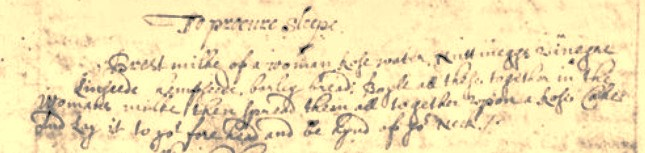 To procure sleepe.
Brest milke of a woman Rose water Nuttmegge vinegre
Linseede hempseede, barley bread; Boyle all these together in the
Womans milke then spread them all together vpon a Rose Cake
and Lay it to yor fore head and be hynd of yor Neck.